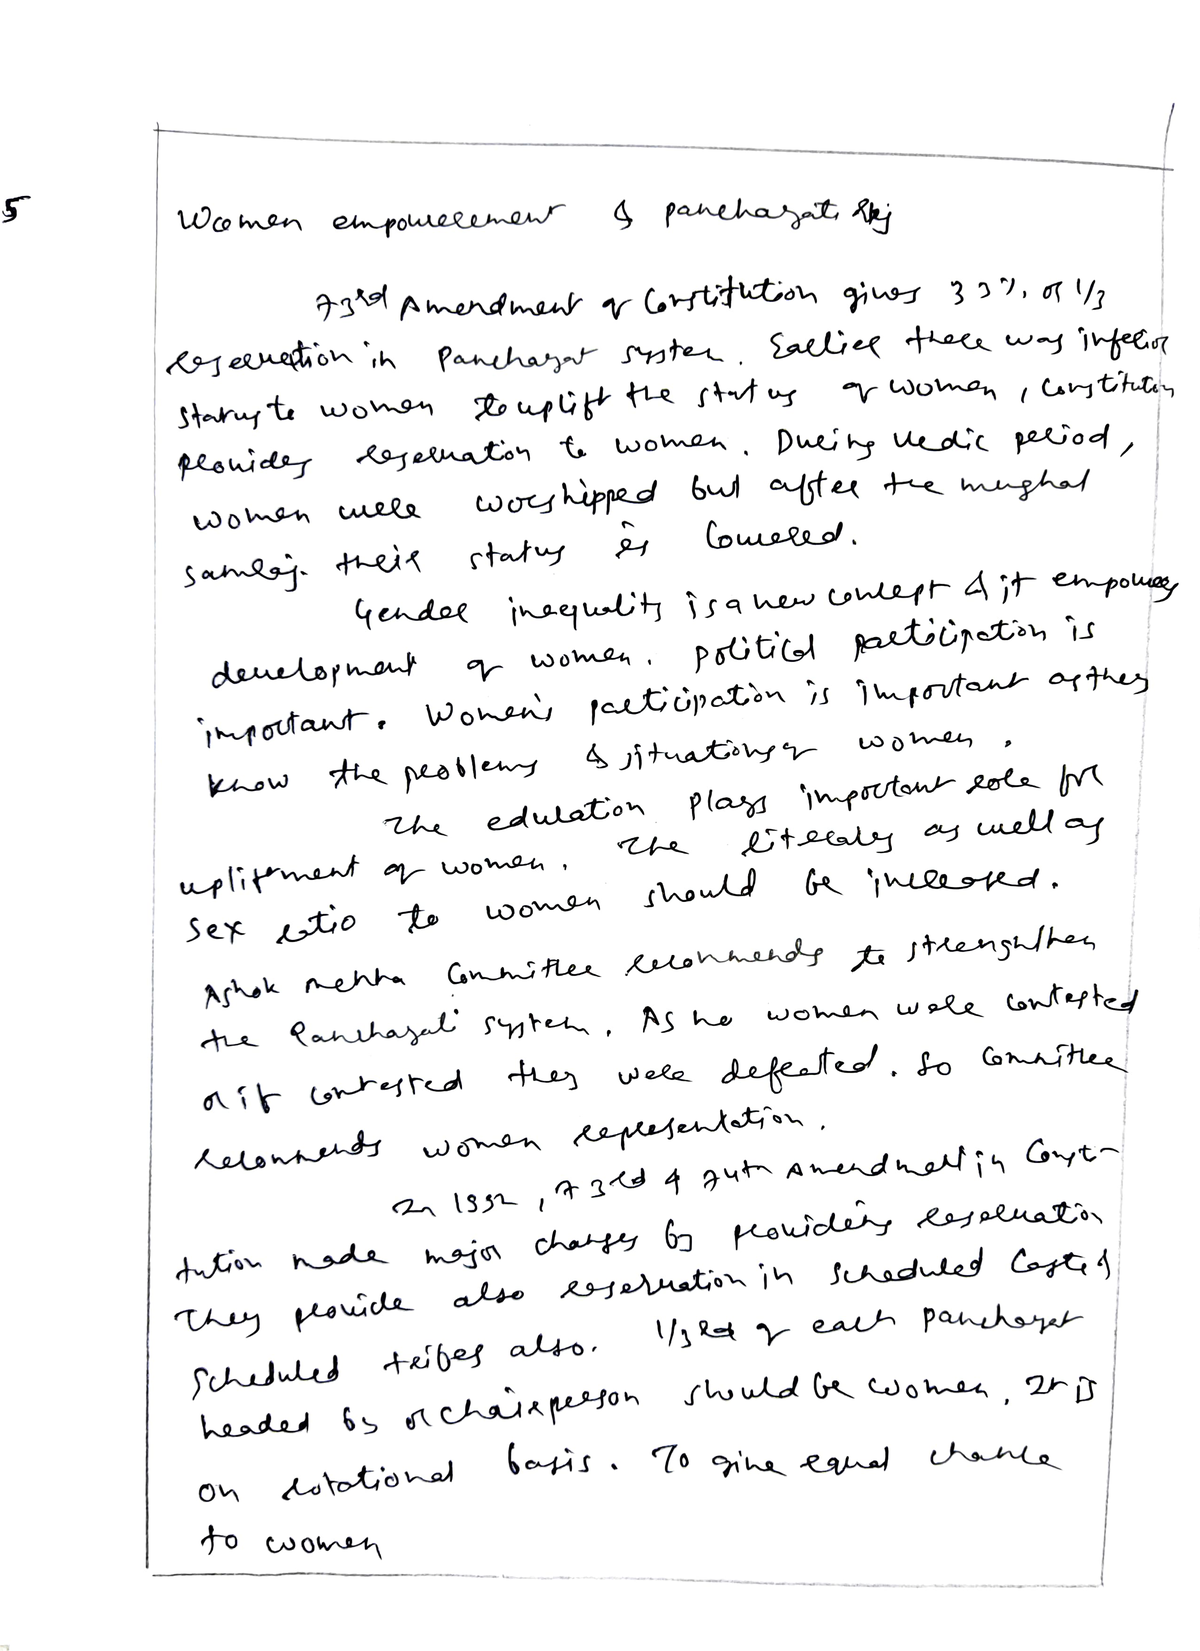 5
Women empowerement & panchayati Raj
73rd Amendment of Constitution gives 33%. or 1/3
reservation in Panchayat system. Earlier there was inferior
status to women to uplift the status of women, Constitution
provides reservation to women. During Vedic period,
women were worshipped but after the mughal
samraj. their status is lowered.
Gender inequality is a new concept & it empowers
development of women. political participation is
important. Women's participation is important as they
know the problems & situations of women.
The education plays important role for
uplifement of women. The literacy as well as
Sex ratio to women should be increased.
Ashok mehta Committee recommends to strengthen
the Panchayati system. As no women were contested
or if contested they were defeated. So Committee
recommends women representation.
In 1992, 73rd & 74th Amendment in Const-
tution made major changes by providing reservation
They provide also reservation in Scheduled Caste &
Scheduled tribes also. 1/3 rd of each panchayat
headed by or chairperson should be women. It is
on rotational basis. To give equal chance
to women